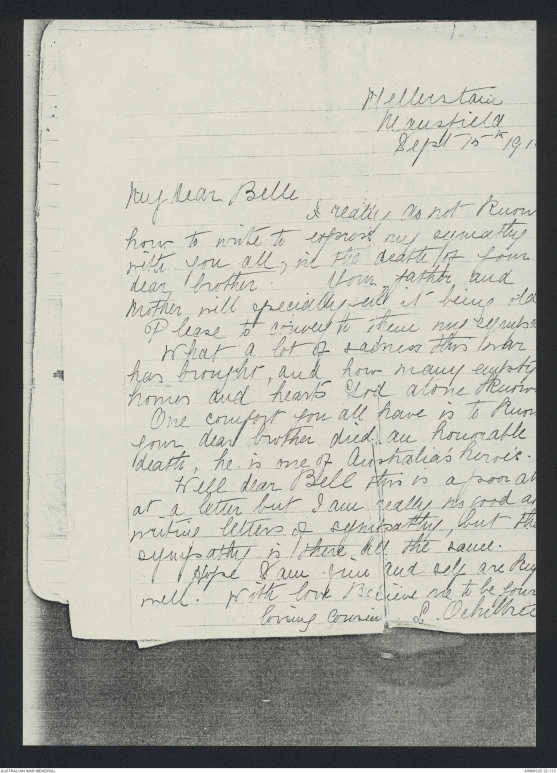 Mansfield
Sept 15th 191
My dear Belle
I really do not know
how to write to express my sympathy
with you all, in the death of your
dear brother. Your father and
Mother will specially feel it being old
Please to convey to them my sympat
What a lot of sadness this war
has brought, and how many empty
homes and hearts God alone knows
One comfort you all have is to know
your dear brother died an honorable
death, he is one of Australia's heroes.
Well dear Bell this is a poor at
at a letter but I am really no good a
writing letters of sympathy, but the
sympathy is there all the same.
Hope Sam Jim and self are
well. With love Believe me to be your
loving cousin L.
AUSTRALIAN WAR MEMORIAL